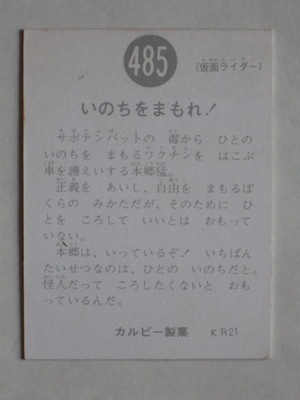 485
(仮面ライダー)
いのちをまもれ！
サボテンバットの 毒から ひとの
いのちを まもるワクチンを はこぶ
車を護えいする本郷猛。
正義を あいし、自由を まもるぼ
くらの みかただが、そのために ひ
とを ころして いいとは おもって
いない。
本郷は、いっているぞ！ いちばん
たいせつなのは、ひとの いのちだと。
怪人だって ころしたくないと おも
っているんだ。
カルビー製菓 KR21